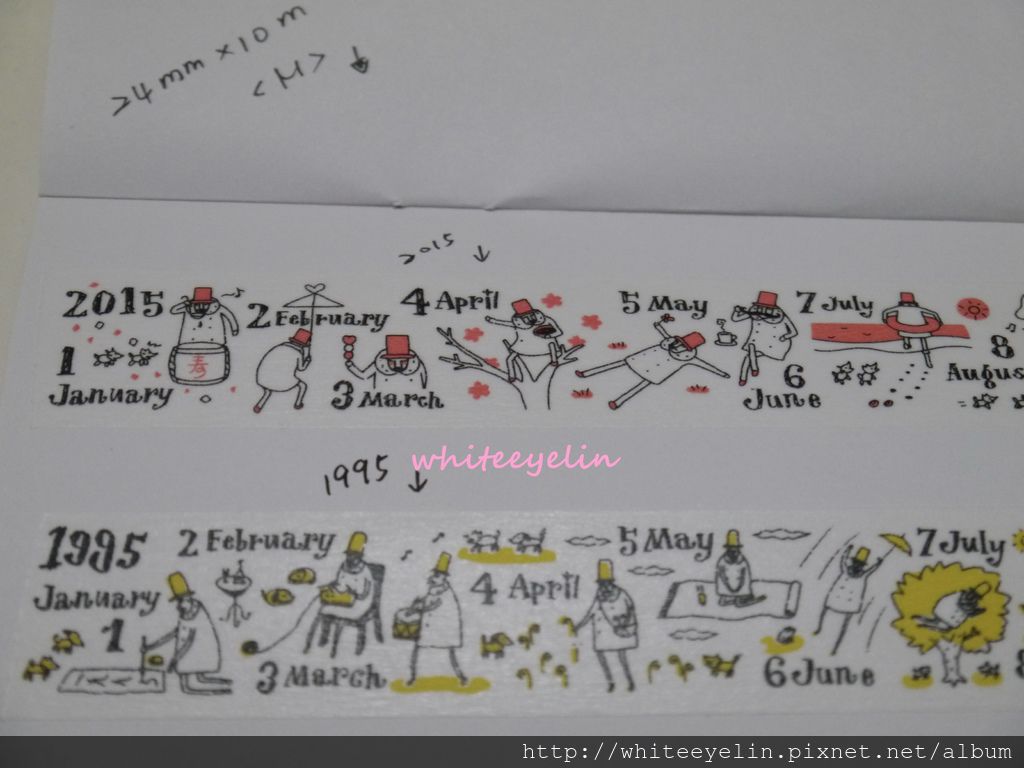 24mm × 10m
<M> ↓
2015 ↓
2015
1
January
2 February
3 March
4 April
5 May
6
June
7 July
8
Augus
春
whiteeyelin
1995 ↓
1995
January
1
2 February
3 March
4 April
5 May
6 June
7 July
8
http://whiteeyelin.pixnet.net/album